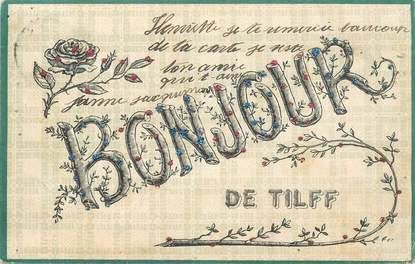 Henriette je te remercie beaucoup
de ta carte je reste
ton amie
qui t'aime
BONJOUR
DE TILFF